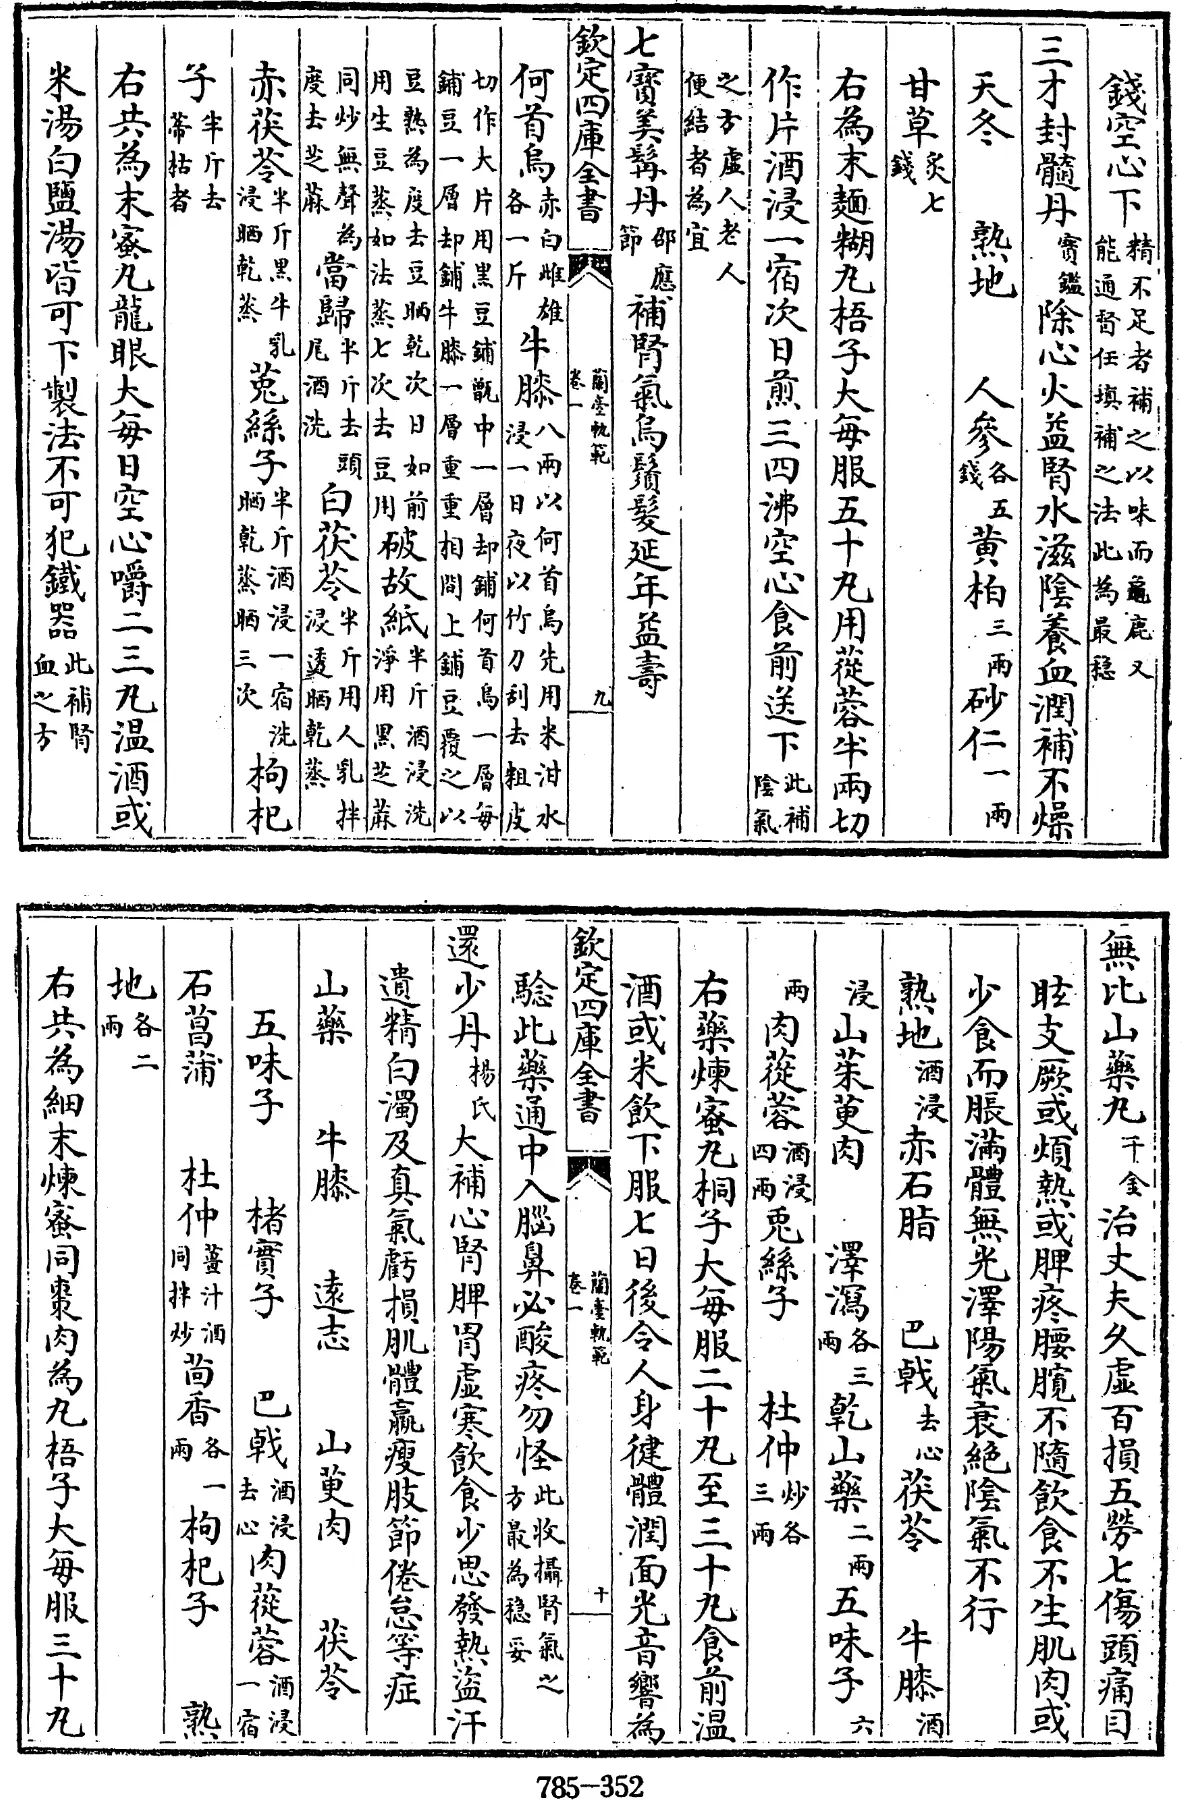 錢空心下精不足者補之以味而龜鹿又能通督任填補之法此為最穩
三才封髓丹寶鑑除心火益腎水滋陰養血潤補不燥
天冬 熟地 人參各五錢黃柏三兩砂仁一兩
甘草炙七錢
右為末麵糊丸梧子大每服五十丸用蓯蓉半兩切
作片酒浸一宿次日煎三四沸空心食前送下此補陰氣
之方虛人老人便結者為宜
七寶美髯丹邵應節補腎氣烏鬚髮延年益壽
欽定四庫全書 蘭臺軌範卷一 九
何首烏赤白雌雄各一斤牛膝八兩以何首烏先用米泔水浸一日夜以竹刀刮去粗皮
切作大片用黑豆鋪甑中一層却鋪何首烏一層每鋪豆一層却鋪牛膝一層重重相間上鋪豆覆之以
豆熟為度去豆晒乾次日如前用生豆蒸如法蒸七次去豆用破故紙半斤酒浸洗淨用黑芝蔴
同炒無聲為度去芝蔴當歸半斤去頭尾酒洗白茯苓半斤用人乳拌浸透晒乾蒸
赤茯苓半斤黑牛乳浸晒乾蒸菟絲子半斤酒浸一宿洗晒乾蒸晒三次枸杞
子半斤去蒂枯者
右共為末蜜丸龍眼大每日空心嚼二三丸温酒或
米湯白鹽湯皆可下製法不可犯鐵器此補腎血之方
無比山藥丸千金治丈夫久虛百損五勞七傷頭痛目
眩支厥或煩熱或脾疼腰髖不隨飲食不生肌肉或
少食而脹滿體無光澤陽氣衰絕陰氣不行
熟地酒浸赤石脂 巴戟去心茯苓 牛膝酒
浸山茱萸肉 澤瀉各三兩乾山藥二兩五味子六
兩肉蓯蓉酒浸四兩兎絲子 杜仲炒各三兩
右藥煉蜜丸桐子大每服二十丸至三十丸食前温
酒或米飲下服七日後令人身健體潤面光音響為
欽定四庫全書 蘭臺軌範卷一 十
驗此藥通中入腦鼻必酸疼勿怪此收攝腎氣之方最為穩妥
還少丹楊氏大補心腎脾胃虛寒飲食少思發熱盜汗
遺精白濁及真氣虧損肌體羸瘦肢節倦怠等症
山藥 牛膝 遠志 山萸肉 茯苓
五味子 楮實子 巴戟酒浸去心肉蓯蓉酒浸一宿
石菖蒲 杜仲薑汁酒同拌炒茴香各一兩枸杞子 熟
地各二兩
右共為細末煉蜜同棗肉為丸梧子大每服三十丸
785-352